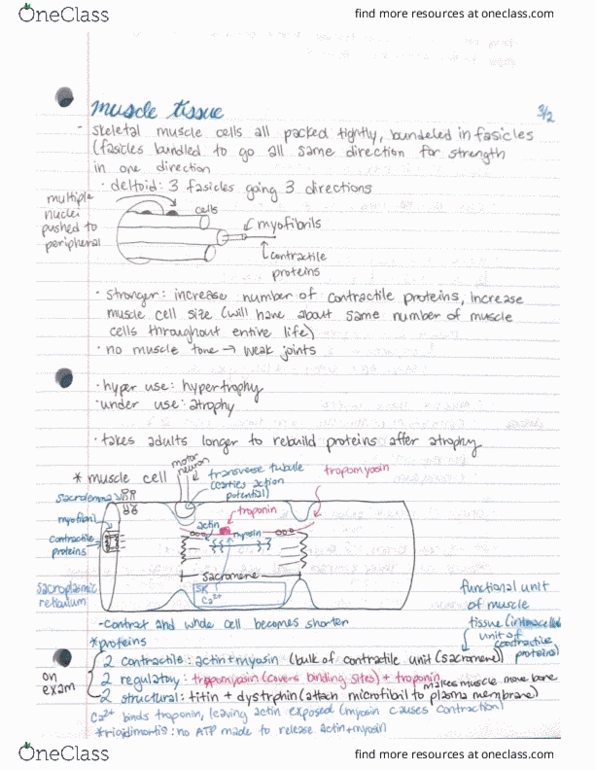 OneClass
find more resources at oneclass.com
muscle tissue
3/2
- skeletal muscle cells all packed tightly, bundeled in fasicles
(fasicles bundled to go all same direction for strength
in one direction
· deltoid: 3 fasicles going 3 directions
multiple
nuclei
pushed to
peripheral
cells
myofibrils
contractile
proteins
· stronger: increase number of contractile proteins, increase
muscle cell size (will have about same number of muscle
cells throughout entire life)
· no muscle tone → weak joints
· hyper use: hypertrophy
· under use: atrophy
· takes adults longer to rebuild proteins after atrophy
* muscle cell
motor
neuron
transverse tubule
(carties action
potential)
tropomyosin
sacrolemma
myofibril
contractile
proteins
troponin
actin
myosin
sacromere
SR
Ca2+
sacroplasmic
reticulum
functional unit
of muscle
tissue (intracellular
unit of
contractile
proteins)
- contract and whole cell becomes shorter
* proteins
on
exam
2 contractile: actin + myosin (bulk of contractile unit (sacromere)
2 regulatory: tropomyosin (covers binding sites) + troponin
makes muscle move bone
2 structural: titin + dystrphin (attach microfibril to plasma membrane)
Ca2+ binds troponin, leaving actin exposed (myosin causes contraction)
* rigidimortis: no ATP made to release actin + myosin
OneClass
find more resources at oneclass.com